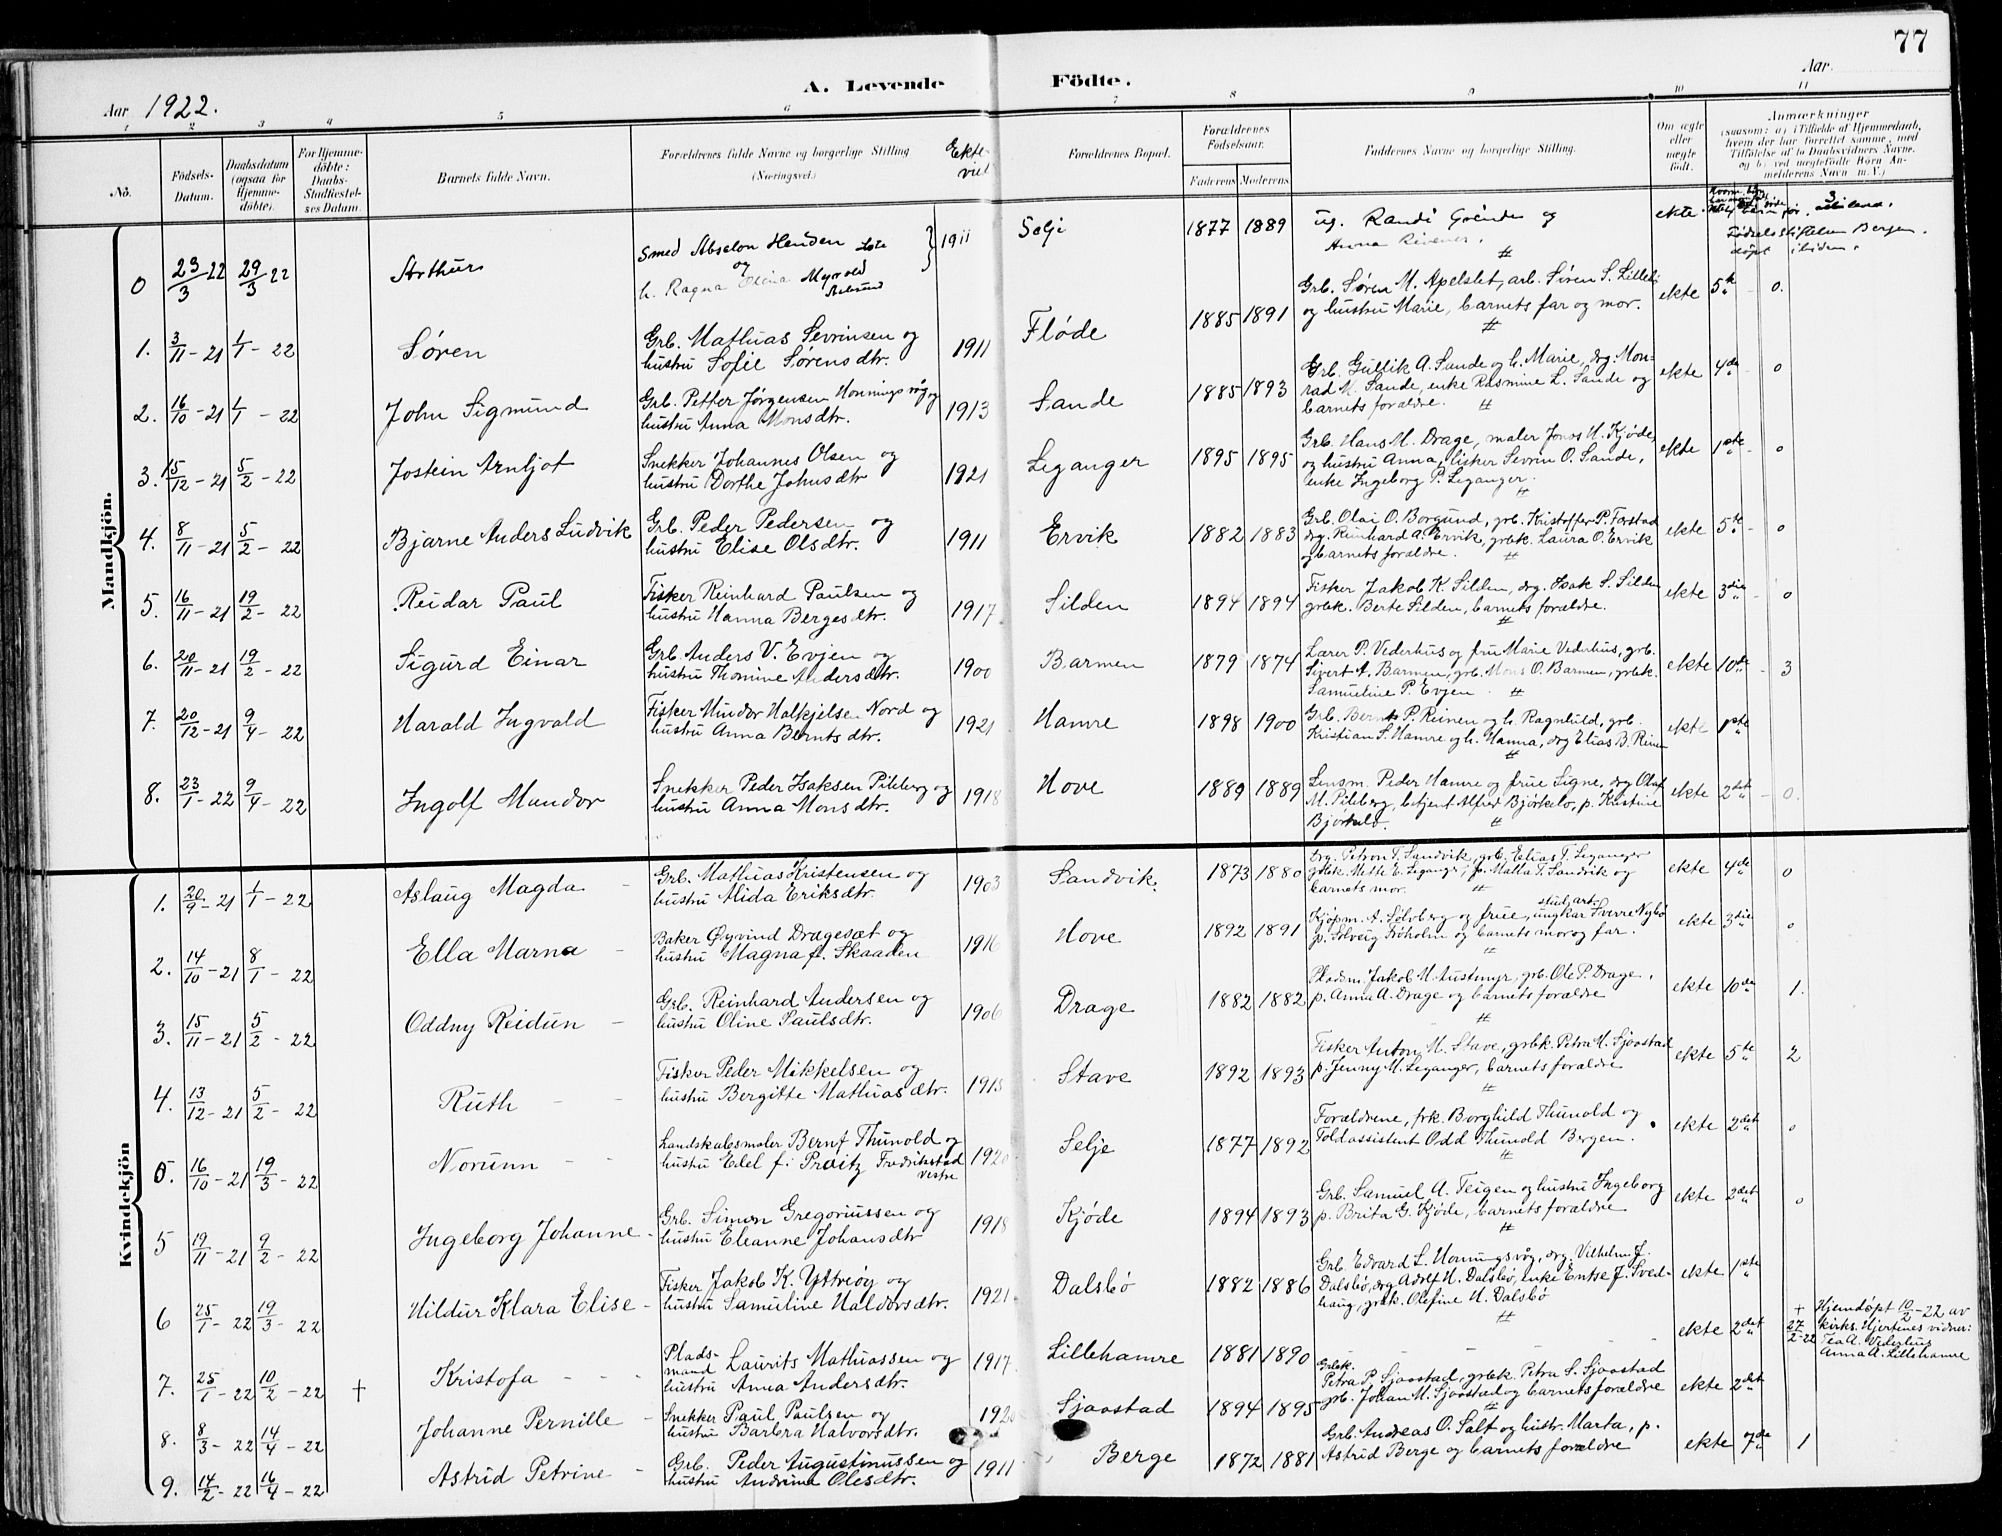 77
A. Levende Födte.
Aar 1922.
Aar.
1 2 3 4 5 6 7 8 9 10 11
No.
Födsels-Datum.
Daabsdatum (ogsaa för Hjemmedöbte).
For Hjemmedöbte: Daabs-Stadfæstelses Datum.
Barnets fulde Navn.
Forældrenes fulde Navne og borgerlige Stilling (Næringsvei.)
Ekte viet
Forældrenes Bopæl.
Forældrenes Födselsaar.
Faderens. Moderens.
Faddernes Navne og borgerlige Stilling.
Om ægte eller uægte födt.
Anmærkninger (saasom: a) i Tilfælde af Hjemmedaab, hvem der har forrettet samme, med Tilföielse af to Daabsvidners Navne, og b) ved uægtefödte Börn Anmelderens Navn m. V.)
Mandkjön.
0 23/3 22 29/3 22 Arthur Smed Absalon Henden og h. Ragna Elina Myrvold } 1911 Selje 1877 1889 ug. Randi Grönden og Anna ekte. Födselsstiftelsen Bergen. döpt ibidem.
1. 3/11 - 21 1/1 - 22 Søren Grb. Mathias Sevrinsen og
hustru Sofie Sørensdtr. 1911 Fløde 1885 1891 Grb. Søren M. Apelset, arb. Søren S. Lillebø
og hustru Marie, barnets far og mor. ekte 5te - 0.
2. 16/10 - 21 1/1 - 22 John Sigmund Grb. Petter Jørgensen Honningsvåg og
hustru Anna Monsdtr. 1913 Sande 1885 1893 Grb. Gullik A. Sande og h. Marie, drg. Mon-
rad M. Sande, enke Rasmine L. Sande og
barnets forældre. ekte 4de - 0
3. 15/12 - 21 5/2 - 22 Jostein Arnljot Snekker Johannes Olsen og
hustru Dorthe Johnsdtr 1921 Leganger 1895 1895 Grb. Hans M. Drage, maler Jonas H. Kjøde,
og hustru Anna, fisker Sevrin O. Sande,
enke Ingeborg P. Leganger. ekte 1ste - 0
4. 8/11 - 21 5/2 - 22 Bjarne Anders Ludvik Grb. Peder Pedersen og
hustru Elise Olsdtr. 1911 Ervik 1882 1883 Grb. Olai O. Borgund, grb. Kristoffer P. Førstad
drg. Reinhard A. Ervik, grbk. Laura O. Ervik
og barnets forældre. ekte 5te - 0
5. 16/11 - 21 19/2 - 22 Reidar Paul Fisker Reinhard Paulsen og
hustru Hanna Bergesdtr. 1917 Silden 1894 1894 Fisker Jakob K. Silden, drg. Isak S. Silden
grbk. Berte Silden, barnets forældre. ekte 3die - 0
6. 20/11 - 21 19/2 - 22 Sigurd Einar Grb. Anders V. Evjen og
hustru Thomine Andersdtr. 1900 Barmen 1879 1874 Lærer P. Vederhus og fru Marie Vederhus, grb.
Sivert A. Barmen, grb. Mons O. Barmen, grbk.
Samueline P. Evjen. ekte 10de - 3
7. 20/12 - 21 9/4 - 22 Harald Ingvald Fisker Mundor Halkjelsen Nord og
hustru Anna Berntsdtr. 1921 Hamre 1898 1900 Grb. Bernt P. Reinen og h. Ragnhild, grb.
Kristian S. Hamre og h. Hanna, drg Elias B. Reinen ekte 1ste
8. 23/1 - 22 9/4 - 22 Ingolf Mundor Snekker Peder Isaksen Pileberg og
hustru Anna Monsdtr. 1918 Hove 1889 1889 Lensm. Peder Hamre og frue Signe, drg Olaf
M. Pileberg, betjent Alfred Bjørkelo, p. Kristine
Bjørkelo. ekte 2det - 0.
Kvindekjön
1. 20/9 - 21 1/1 - 22 Aslaug Magda - Grb. Mathias Kristensen og
hustru Alida Eriksdtr. 1903 Sandvik. 1873 1880 Drg. Petron T. Sandvik, grb. Elias T. Leganger
grbk. Mette E. Leganger, p. Malla T. Sandvik og
barnets mor. ekte 4de 0
2. 14/10 - 21 8/1 - 22 Ella Marna - Baker Øyvind Dragesæt og
hustru Magna f. Skaaden 1916 Hove 1892 1891 Kjøpm. A. Sølvberg og frue, stud. art. ungkar Sverre Nybø
p. Solveig Friholm og barnets mor og far. ekte 3die 0
3. 15/11 - 21 5/2 - 22 Oddny Reidun - Grb. Reinhard Andersen og
hustru Oline Paulsdtr. 1906 Drage 1882 1882 Pladsm. Jakob M. Austmyr, grb. Ole P. Drage,
p. Anna A. Drage og barnets forældre ekte 10de 1.
4. 13/12 - 21 5/2 - 22 Ruth - - Fisker Peder Mikkelsen og
hustru Bergitte Mathiasdtr. 1915 Stave 1892 1893 Fisker Anton M. Stave, grbk. Petra M. Sjaastad
p. Jenny M. Leganger, barnets forældre ekte 5te 2
5. 16/10 - 21 19/3 - 22 Norunn - - Landskabsmaler Bernt Thunold og
hustru Edel f. Preitz Fredrikstad vestre 1920 Selje 1877 1892 Forældrene, frk. Borghild Thunold og
Toldassistent Odd Thunold Bergen. ekte 2det 0
5 19/11 - 21 9/2 - 22 Ingeborg Johanne - Grb. Simon Gregoriussen og
hustru Eleanne Johansdtr 1918 Kjøde 1894 1893 Grb. Samuel A. Teigen og hustru Ingeborg
p. Brita G. Kjøde, barnets forældre ekte 2det 0
6 25/1 - 22 19/3 - 22 Hildur Klara Elise - Fisker Jakob K. Yttreøy og
hustru Samuline Haldorsdtr. 1921 Dalsbø 1882 1886 Grb. Edvard L. Honningsvøg, drg. Vilhelm J.
Dalsbø, drg Adolf H. Dalsbø, enke Entse J. Sved-
haug, grbk. Olefine H. Dalsbø ekte 1ste
7. 25/1 - 22 10/2 - 22 † Kristofa - - - Pladsmand Laurits Mathiassen og
hustru Anna Andersdtr. 1917. Lillehamre 1881 1890 - - - ekte 2det † 27/2-22 Hjemdøpt 10/2-22 av
kirks. Hjertenes vidner:
Tea A. Vederhus
Anna A. Lillehamre
8. 8/3 - 22 14/4 - 22 Johanne Pernille - Snekker Paul Paulsen og
hustru Barbra Halvorsdtr. 1920 Sjaastad 1894 1895 Grbk. Petra P. Sjaastad, grbk. Petra S. Sjaastad
grb. Johan M. Sjaastad og barnets forældre ekte 2det
9. 14/2 - 22 16/4 - 22 Astrid Petrine - Grb. Peder Augustinussen og
hustru Andrina Olesdtr. 1911 Berge 1872 1881 Grb. Andreas O. Salt og hustr. Marta, p.
Astrid Berge og barnets forældre ekte 7de 1